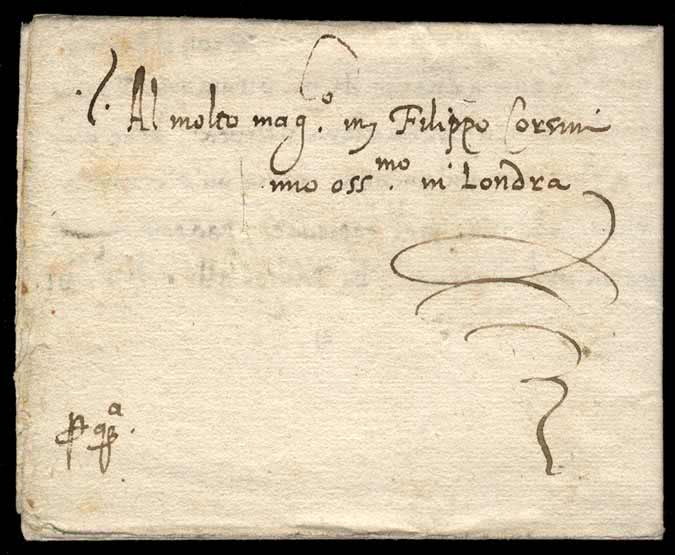 Al molto mag.co m Filippo Corsini
mio oss.mo in Londra